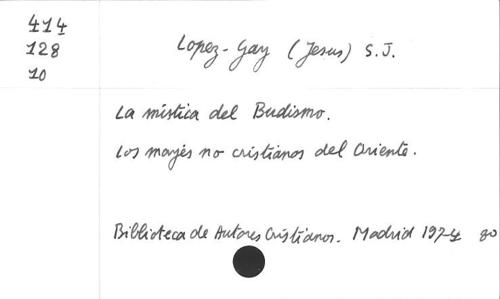 414
128
10
Lopez-Gay (Jesus) S.J.
La mística del Budismo.
Los monjes no cristianos del Oriente.
Biblioteca de Autores Cristianos. Madrid 1974 80